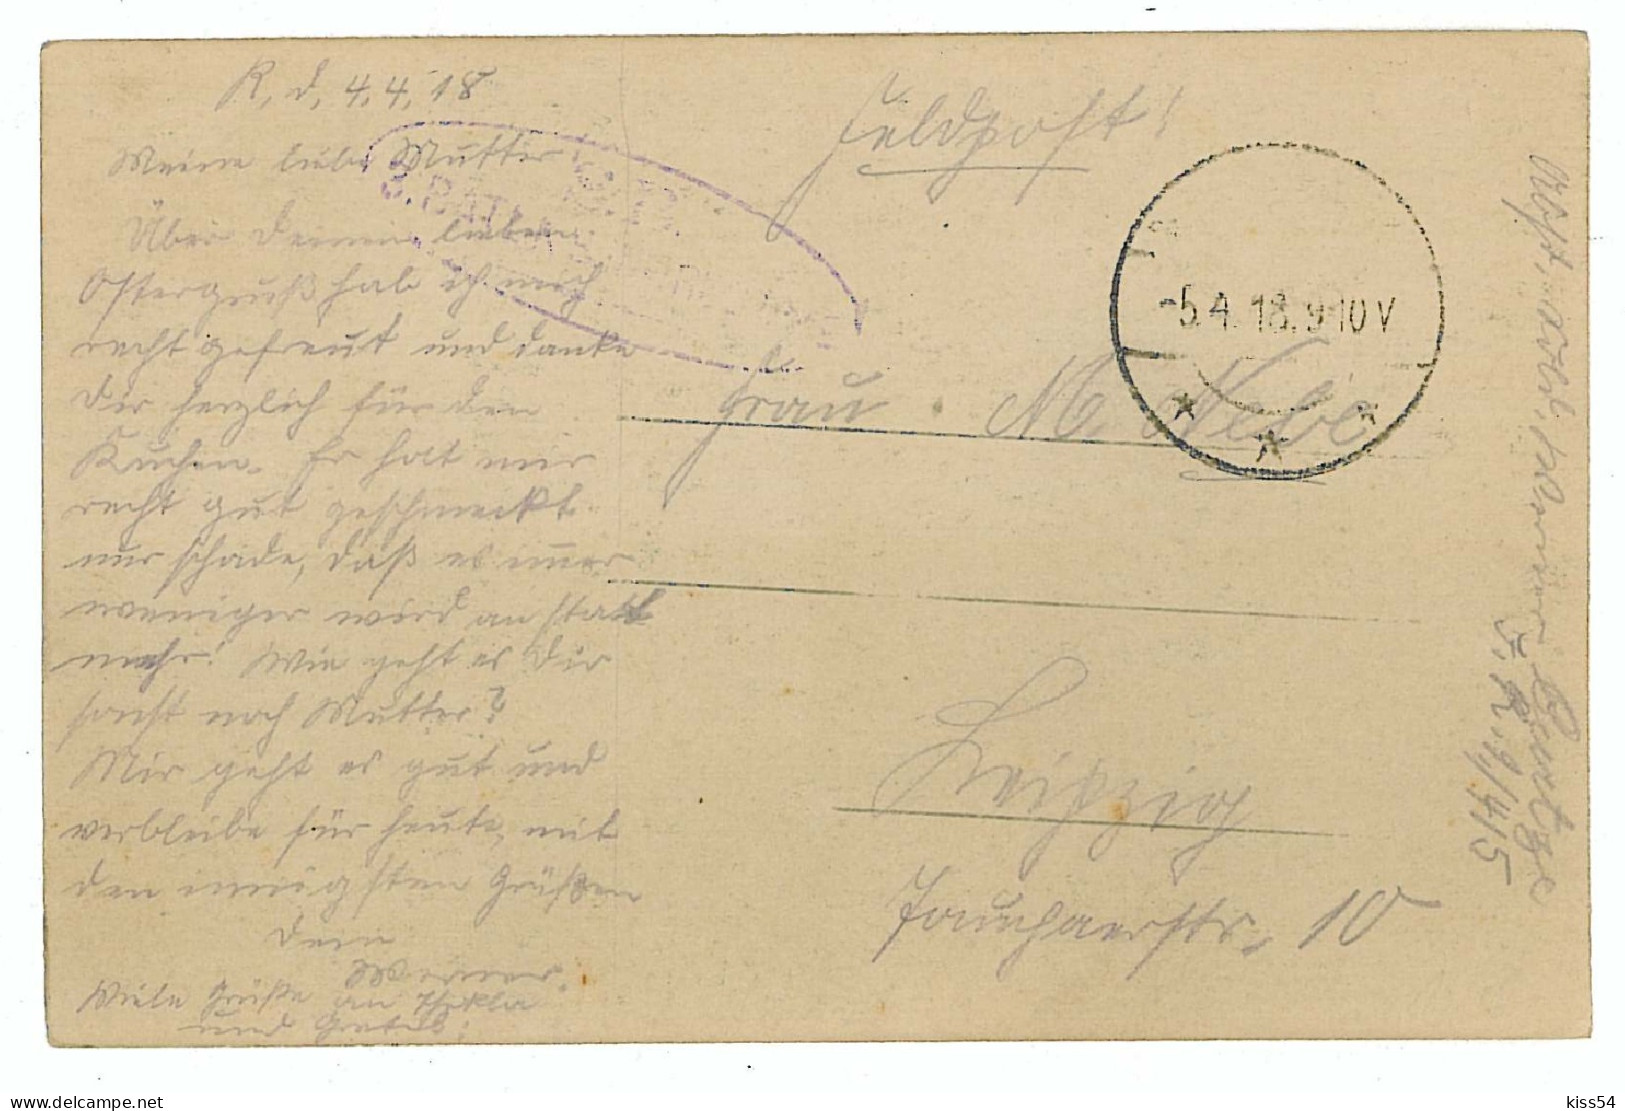 R, d, 4.4.18
Meine liebe Mutter
Über Deinen lieben
Ostergruß hab ich mich
recht gefreut und danke
Dir herzlich für den
Kuchen. Er hat mir
recht gut geschmeckt
nur schade, daß es immer
weniger wird an statt
mehr! Wie geht es Dir
sonst noch Mutter?
Mir geht es gut und
verbleibe für heute, mit
den innigsten Grüßen
Dein
Werner.
Viele Grüße an Thekla
und
Feldpost!
-5.4.18. 9-10 V
3. BATT
Frau M. Nebe
Leipzig
Tauchaerstr. 10
Abs.
F. R. 9/415
kiss54